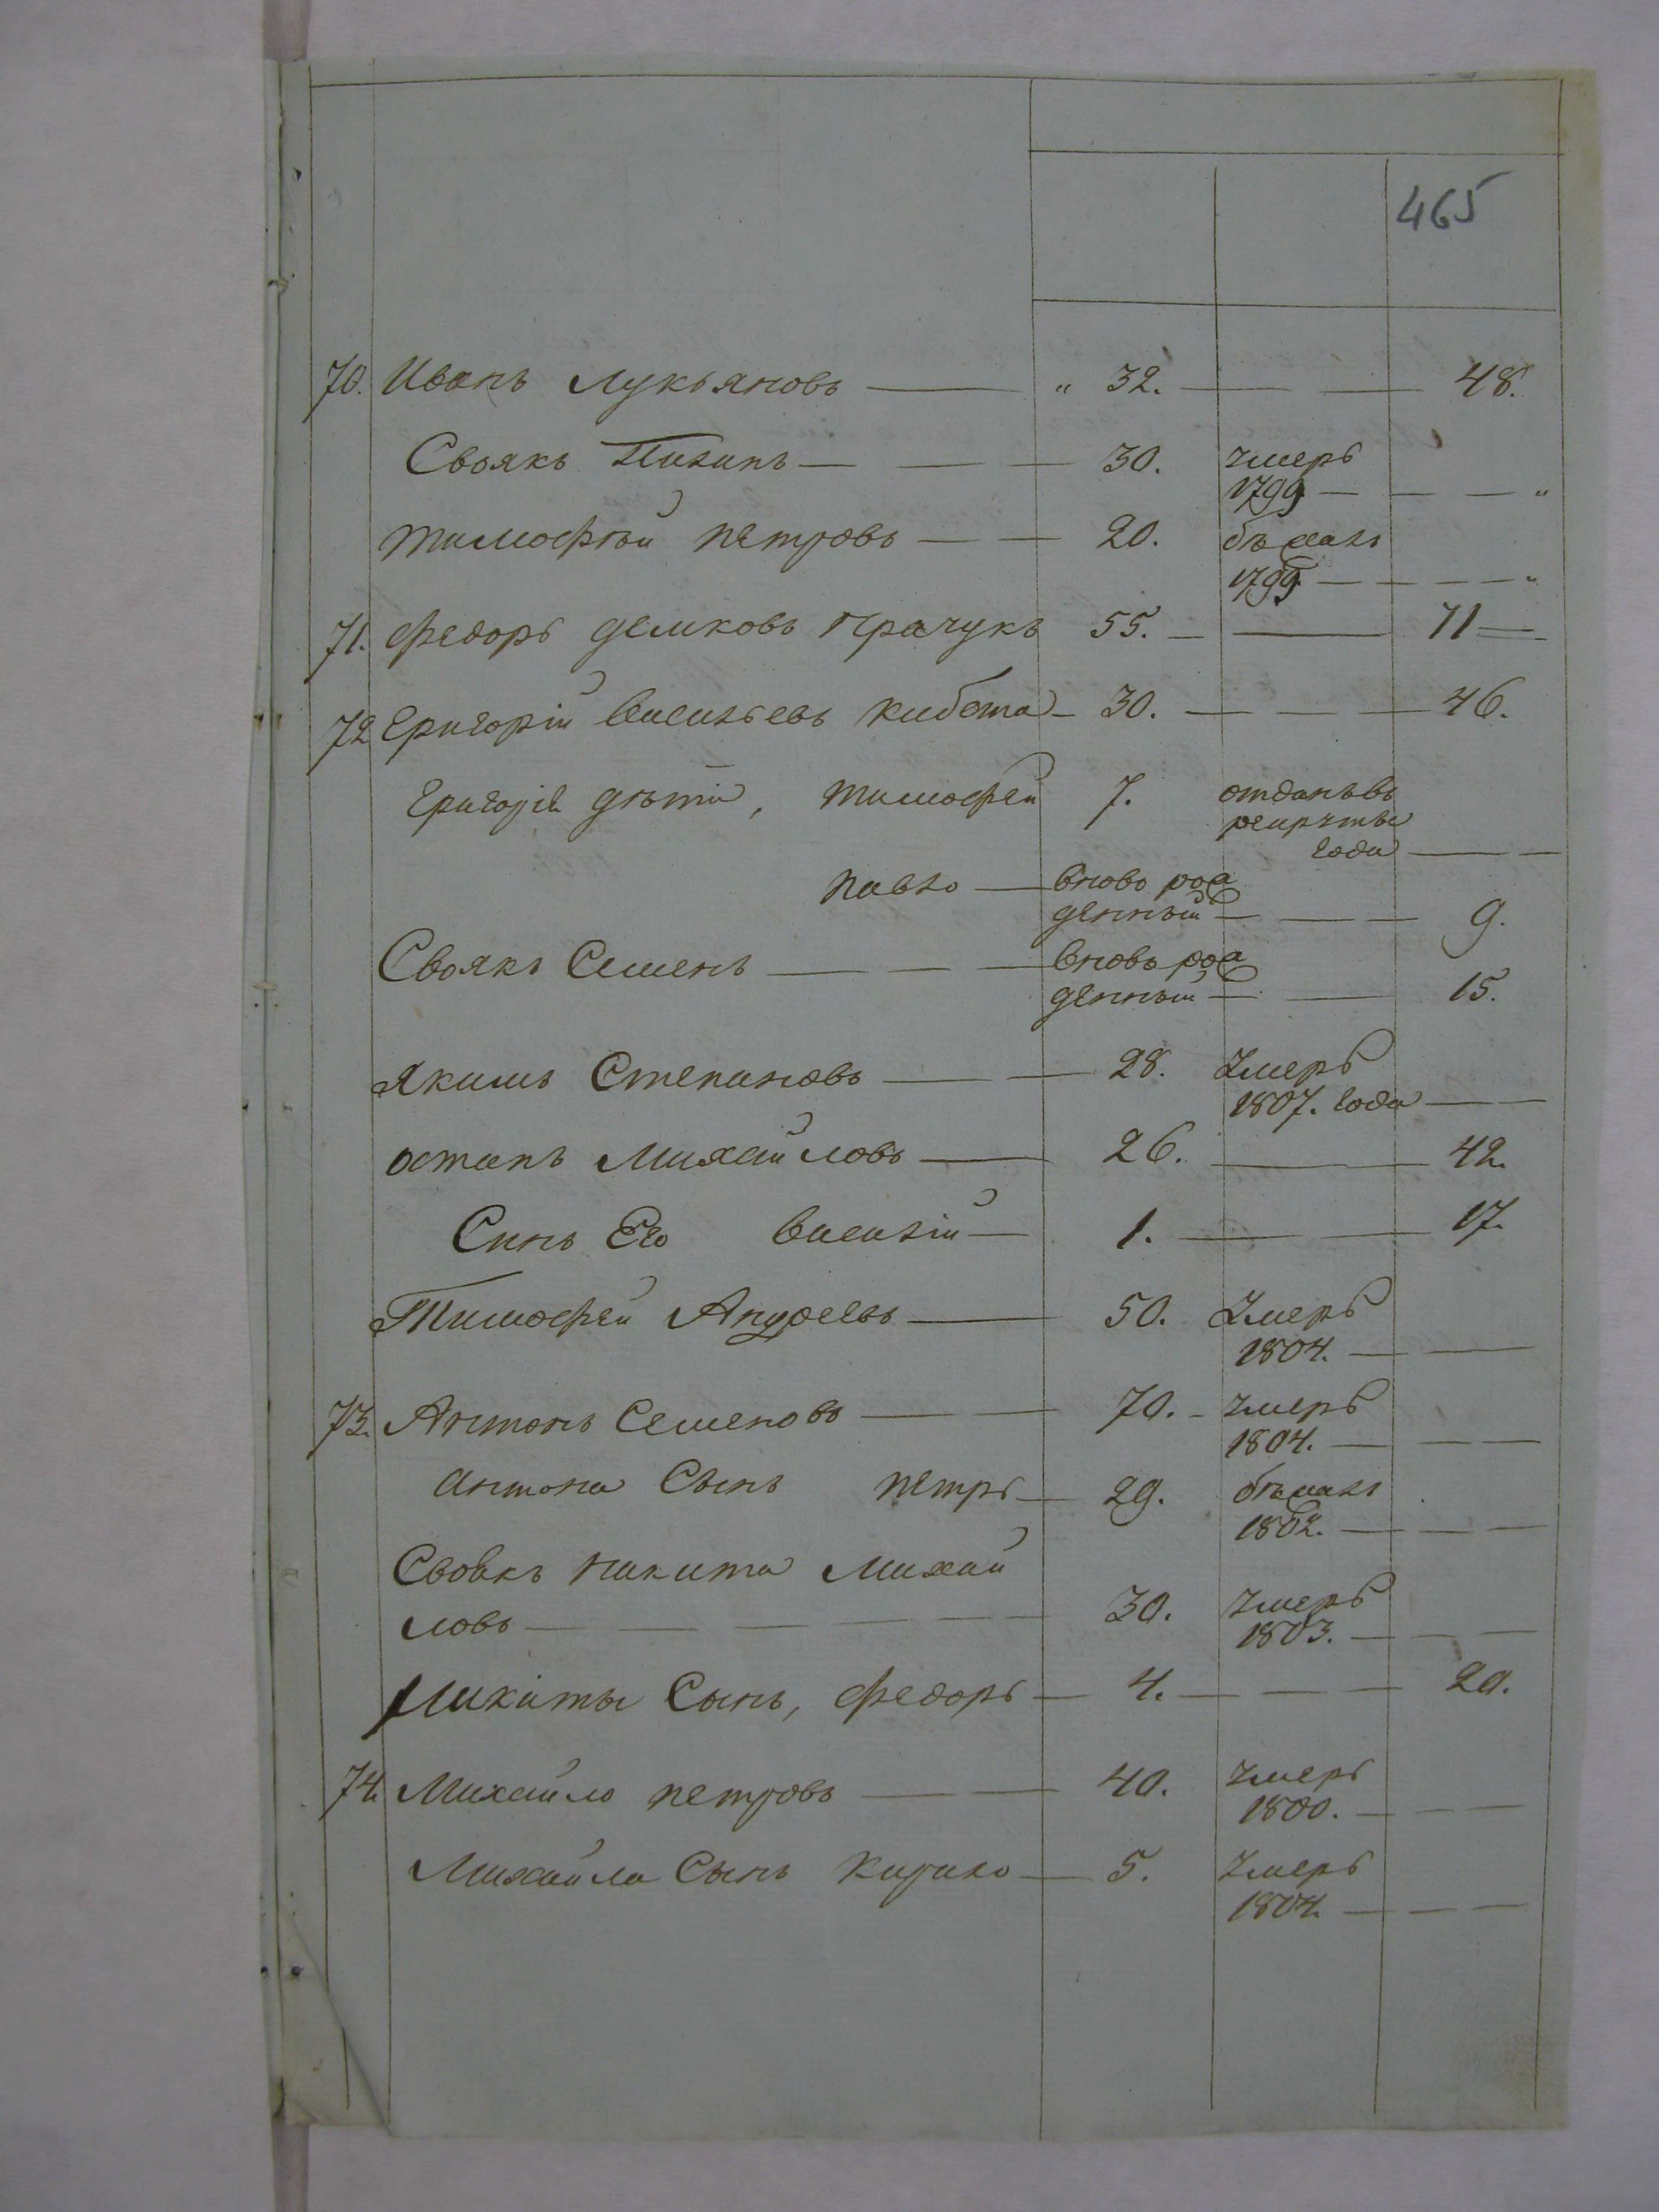 465
70. Иванъ Лукьяновъ — „ 32. — — 48.
Своякъ Пилипъ — — — 30. Умеръ
1799 — — — „
Тимофѣй Петровъ — — 20. бѣжалъ
1799. — — — „
71. Федоръ Демковъ Прачукъ 55. — — 71 —
72 Григорій Васильевъ Кибета — 30. — — — 46.
Григорія дѣти, Тимофей 7. отданъ въ
рекруты
года — —
Павло — вново рож
денный — — — 9.
Своякъ Семенъ — — — вновь рож
денный — — 15.
Якимъ Степановъ — — 28. Умеръ
1807. года — —
Остапъ Михайловъ — 26. — — 42.
Синъ Его Василій — 1. — — 17.
Тимофей Андреевъ — 50. Умеръ
1804. — —
73. Антонъ Семеновъ — — 70. – Умеръ
1804. — — —
Антона Сынъ Петръ — 29. бѣжалъ
1802. — — —
Своякъ Никита Михай
ловъ — — — — — 30. Умеръ
1803. — — —
Микиты Сынъ, Федоръ — 4. — — — 20.
74. Михайло Петровъ — — 40. Умеръ
1800. — — —
Михайла Сынъ Кирило — 5. Умеръ
1804. — — —